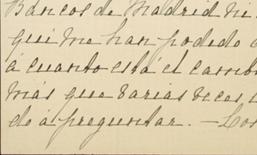 Bancos de Madrid ni
qui me han podido
a cuanto está el cambio
más que varias veces
do á preguntar. — Los